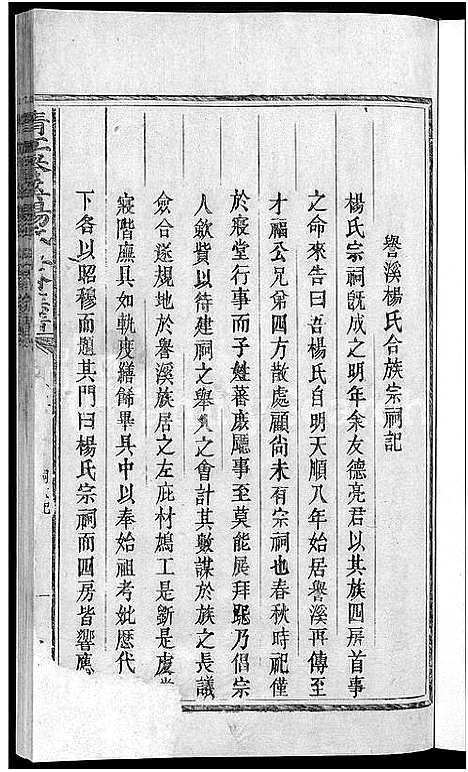 礐溪楊氏合族宗祠記
楊氏宗祠既成之明年余友德亮君以其族四房首事
之命來告曰吾楊氏自明天順八年始居礐溪再傳至
才福公兄弟四方散處顧尚未有宗祠也春秋時祀僅
於寢堂行事而子姓蕃廡廳事至莫能展拜跪乃倡宗
人斂貲以待建祠之舉久之會計其數謀於族之長議
僉合遂規地於礐溪族居之左庇材鳩工是斲是虔
寢階廡具如軌度繕餙畢具中以奉始祖考妣歷代
下各以昭穆而題其門曰楊氏宗祠而四房皆響應